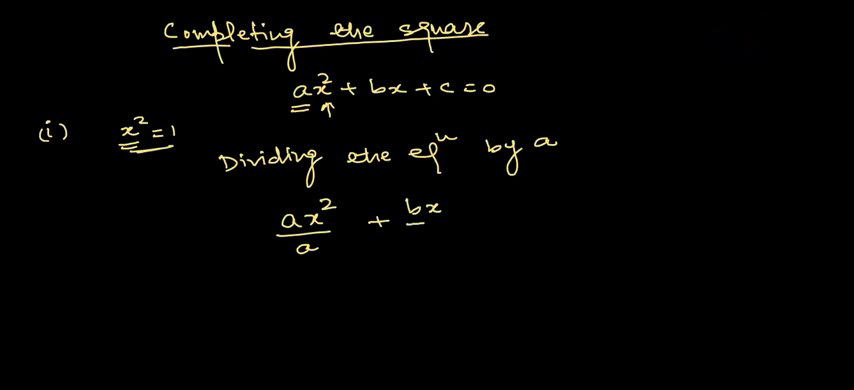 Completing the square
ax² + bx + c = 0
(i) x² = 1
Dividing the eqⁿ by a
ax²/a + bx